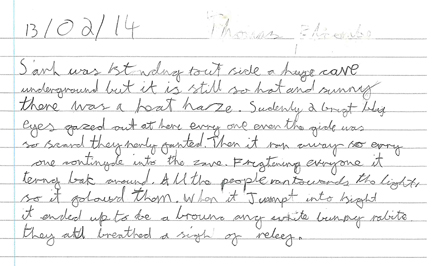 13/02/14 Thomas
Sarh was kst nding out side a huge cave
underground but it is still so hot and sunny
there was a heat harze. Sudenly 2 brigt blue
eyes gazed out at here enry one even the gide was
so scard they nerly fanted. Then it ran away so enry
one contingde into the cave. Frigtening everyone it
terned bak around. All the people ran towards the light,
so it folowd them. When it Jumpt into light
it ended up to be a broun ang white bunny rabite
they all breathed a sigh of releef.